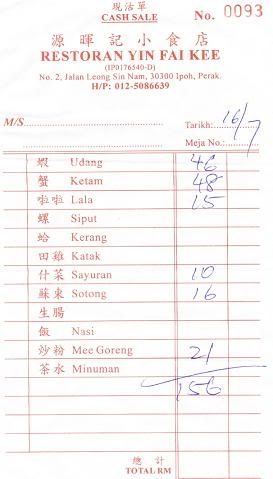 現沽單
CASH SALE
No. 0093
源暉記小食店
RESTORAN YIN FAI KEE
(IP0176540-D)
No. 2, Jalan Leong Sin Nam, 30300 Ipoh, Perak.
H/P: 012-5086639
M/S
Tarikh: 16/7
Meja No.:
蝦 Udang 46
蟹 Ketam 48
啦啦 Lala 15
螺 Siput
蛤 Kerang
田雞 Katak
什菜 Sayuran 10
蘇東 Sotong 16
生腸
飯 Nasi
炒粉 Mee Goreng 21
茶水 Minuman
156
總計
TOTAL RM